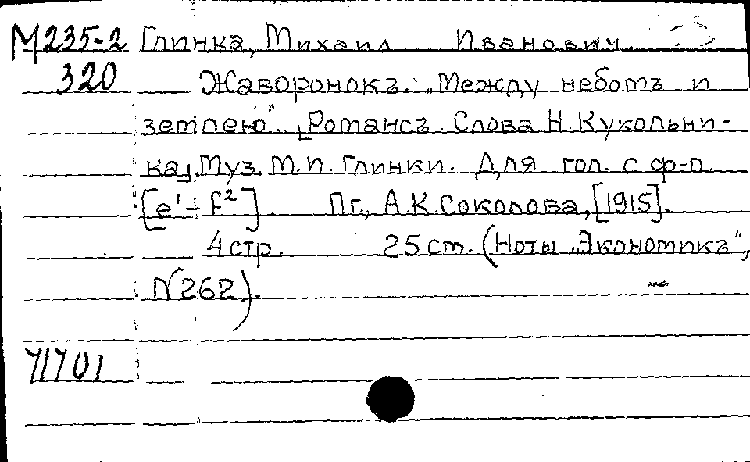 М235-2 Глинка, Михаил Иванович
320 Жаворонокъ. „Между небомъ и
землею". [Романсъ. Слова Н. Кукольни-
ка]. Муз. М. И. Глинки. Для гол. с ф-п.
[e¹ - f²] Пг., А. К. Соколова, [1915].
4 стр. 25 см. (Ноты „Экономикъ",
N 262).
71701